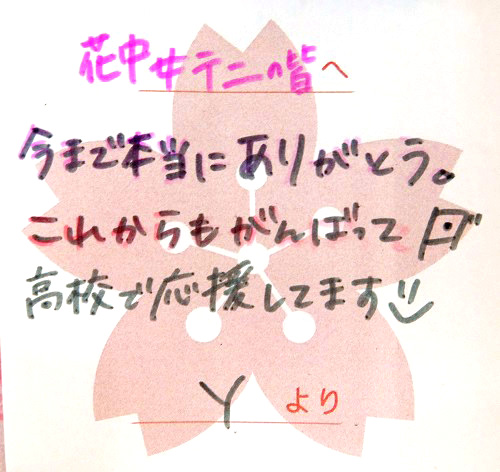 花中女テニの皆へ
今まで本当にありがとう。
これからもがんばって
高校で応援してます
Y より